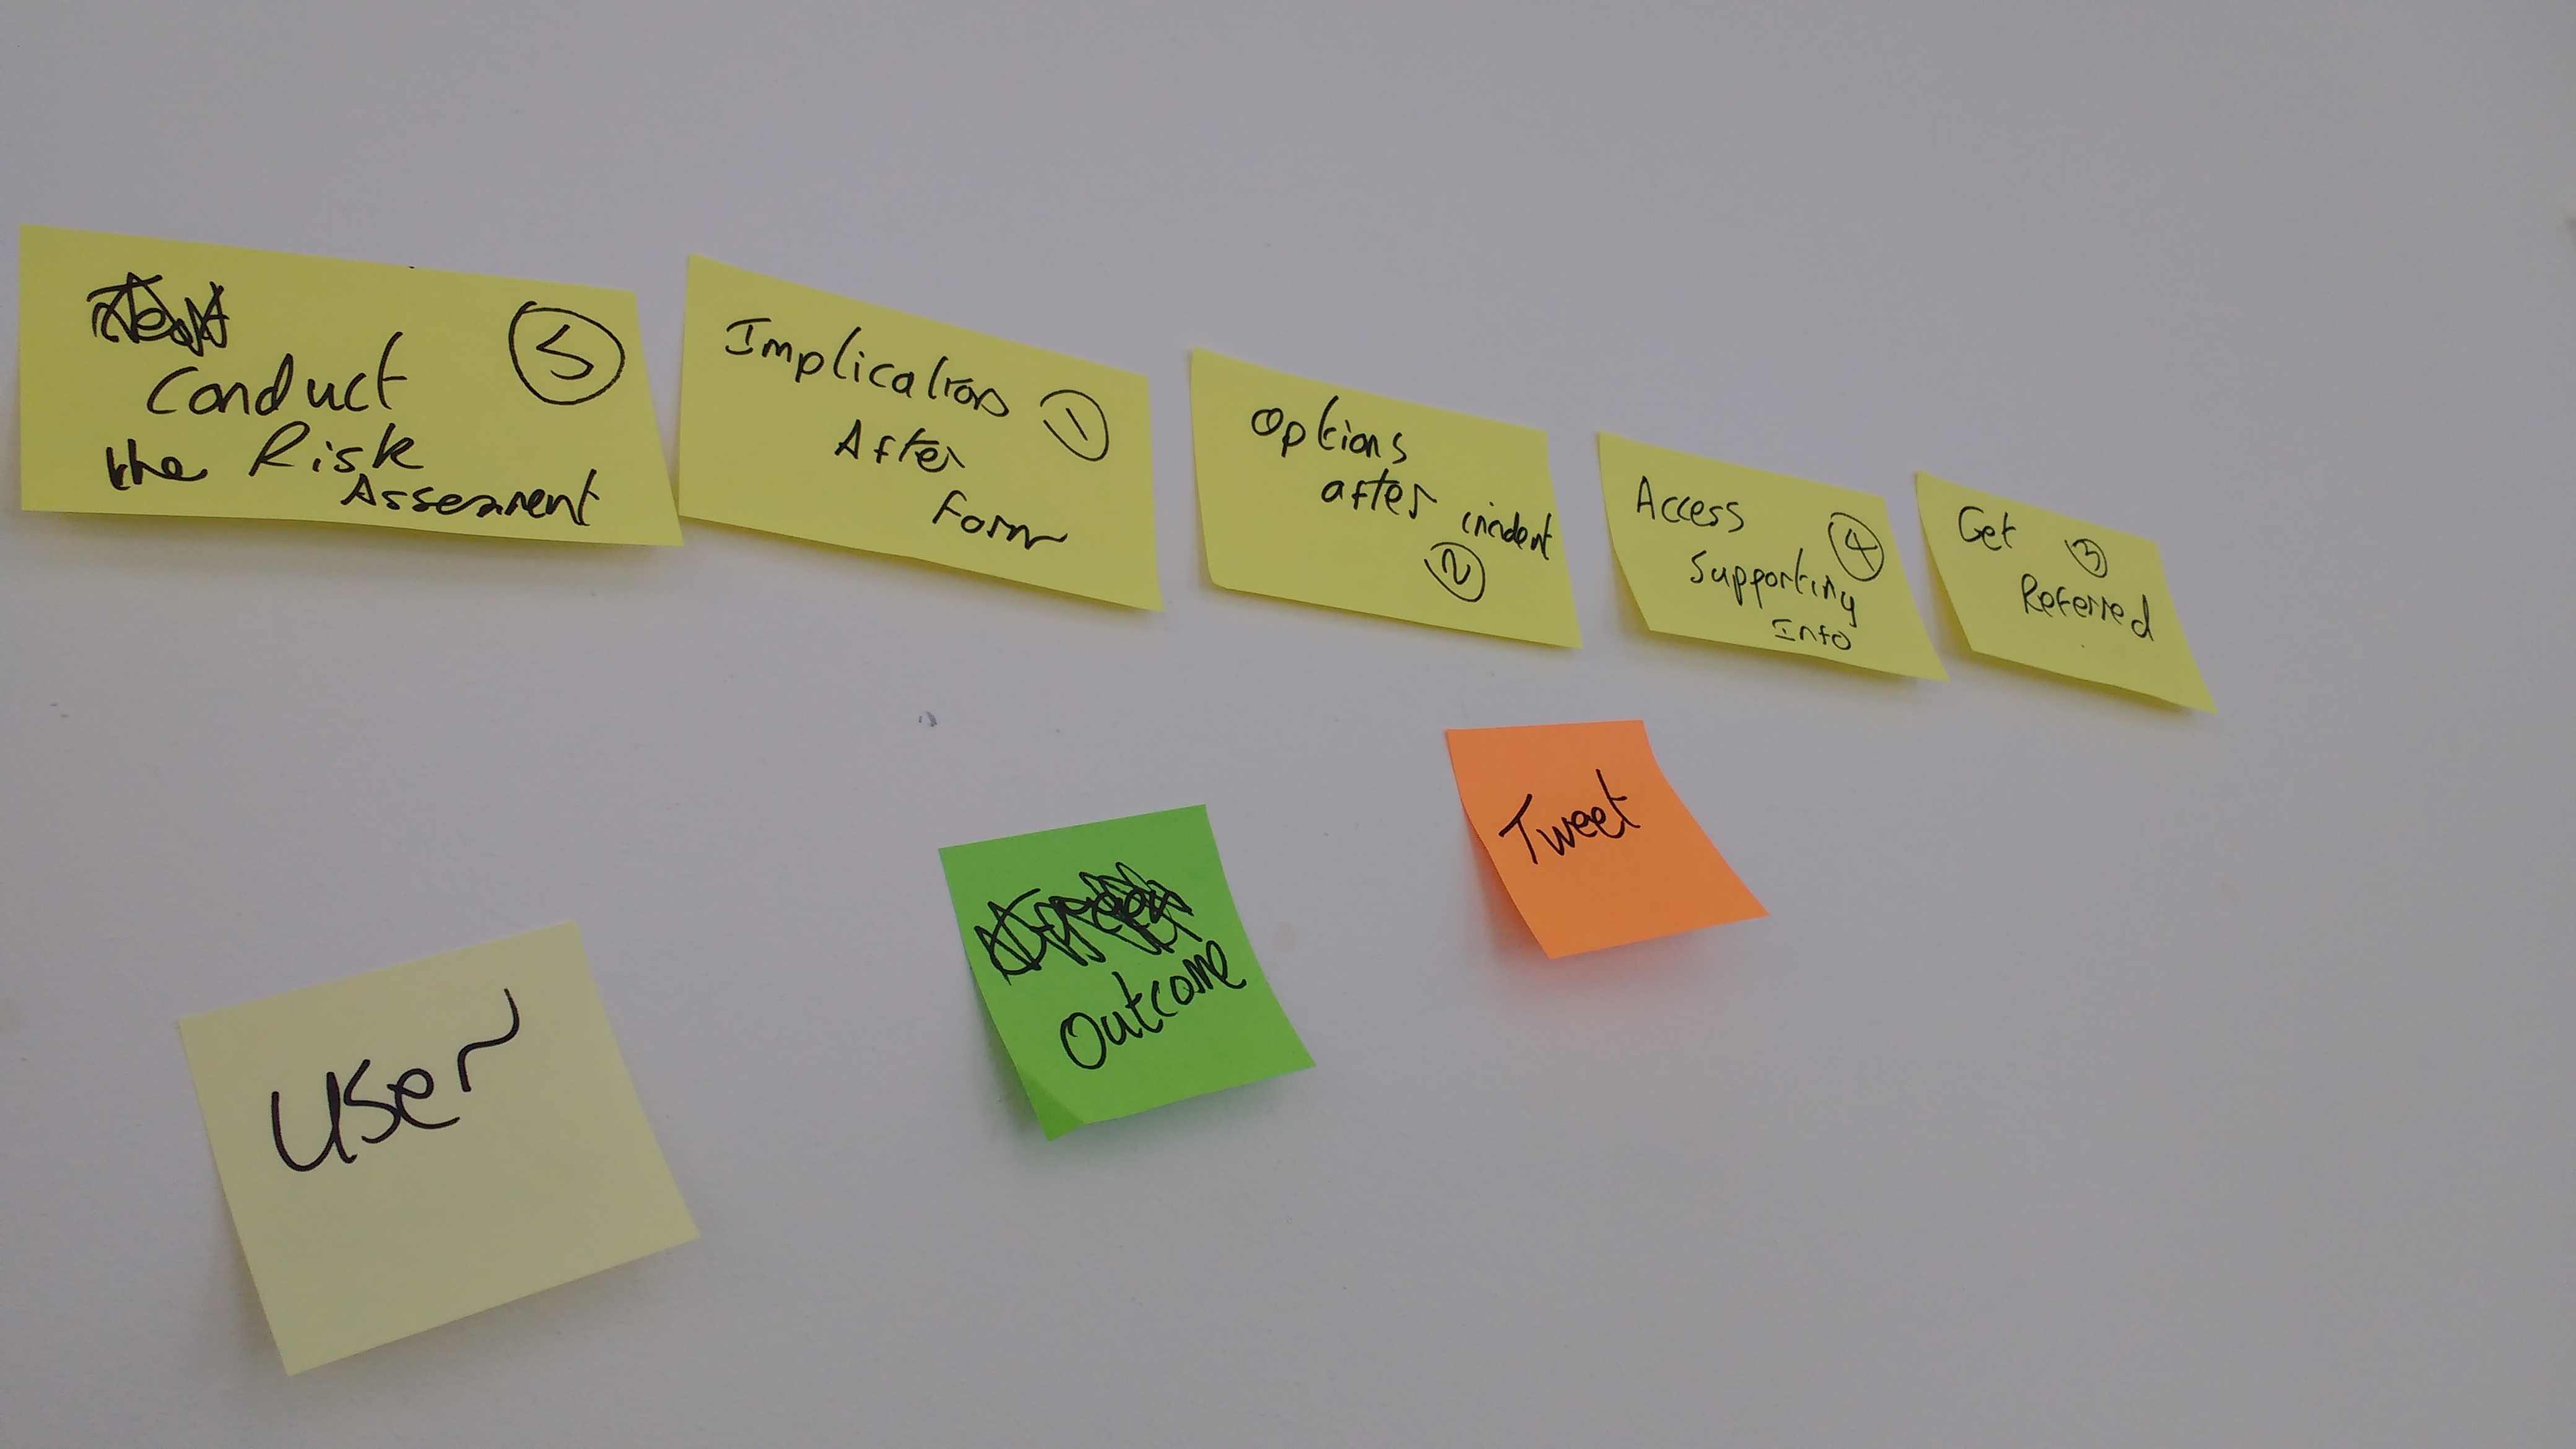 5
Conduct
the Risk
Assessment
Implications
1
After
Form
Options
after incident
2
Access
4
Supporting
Info
Get
3
Referred
Tweet
Outcome
User